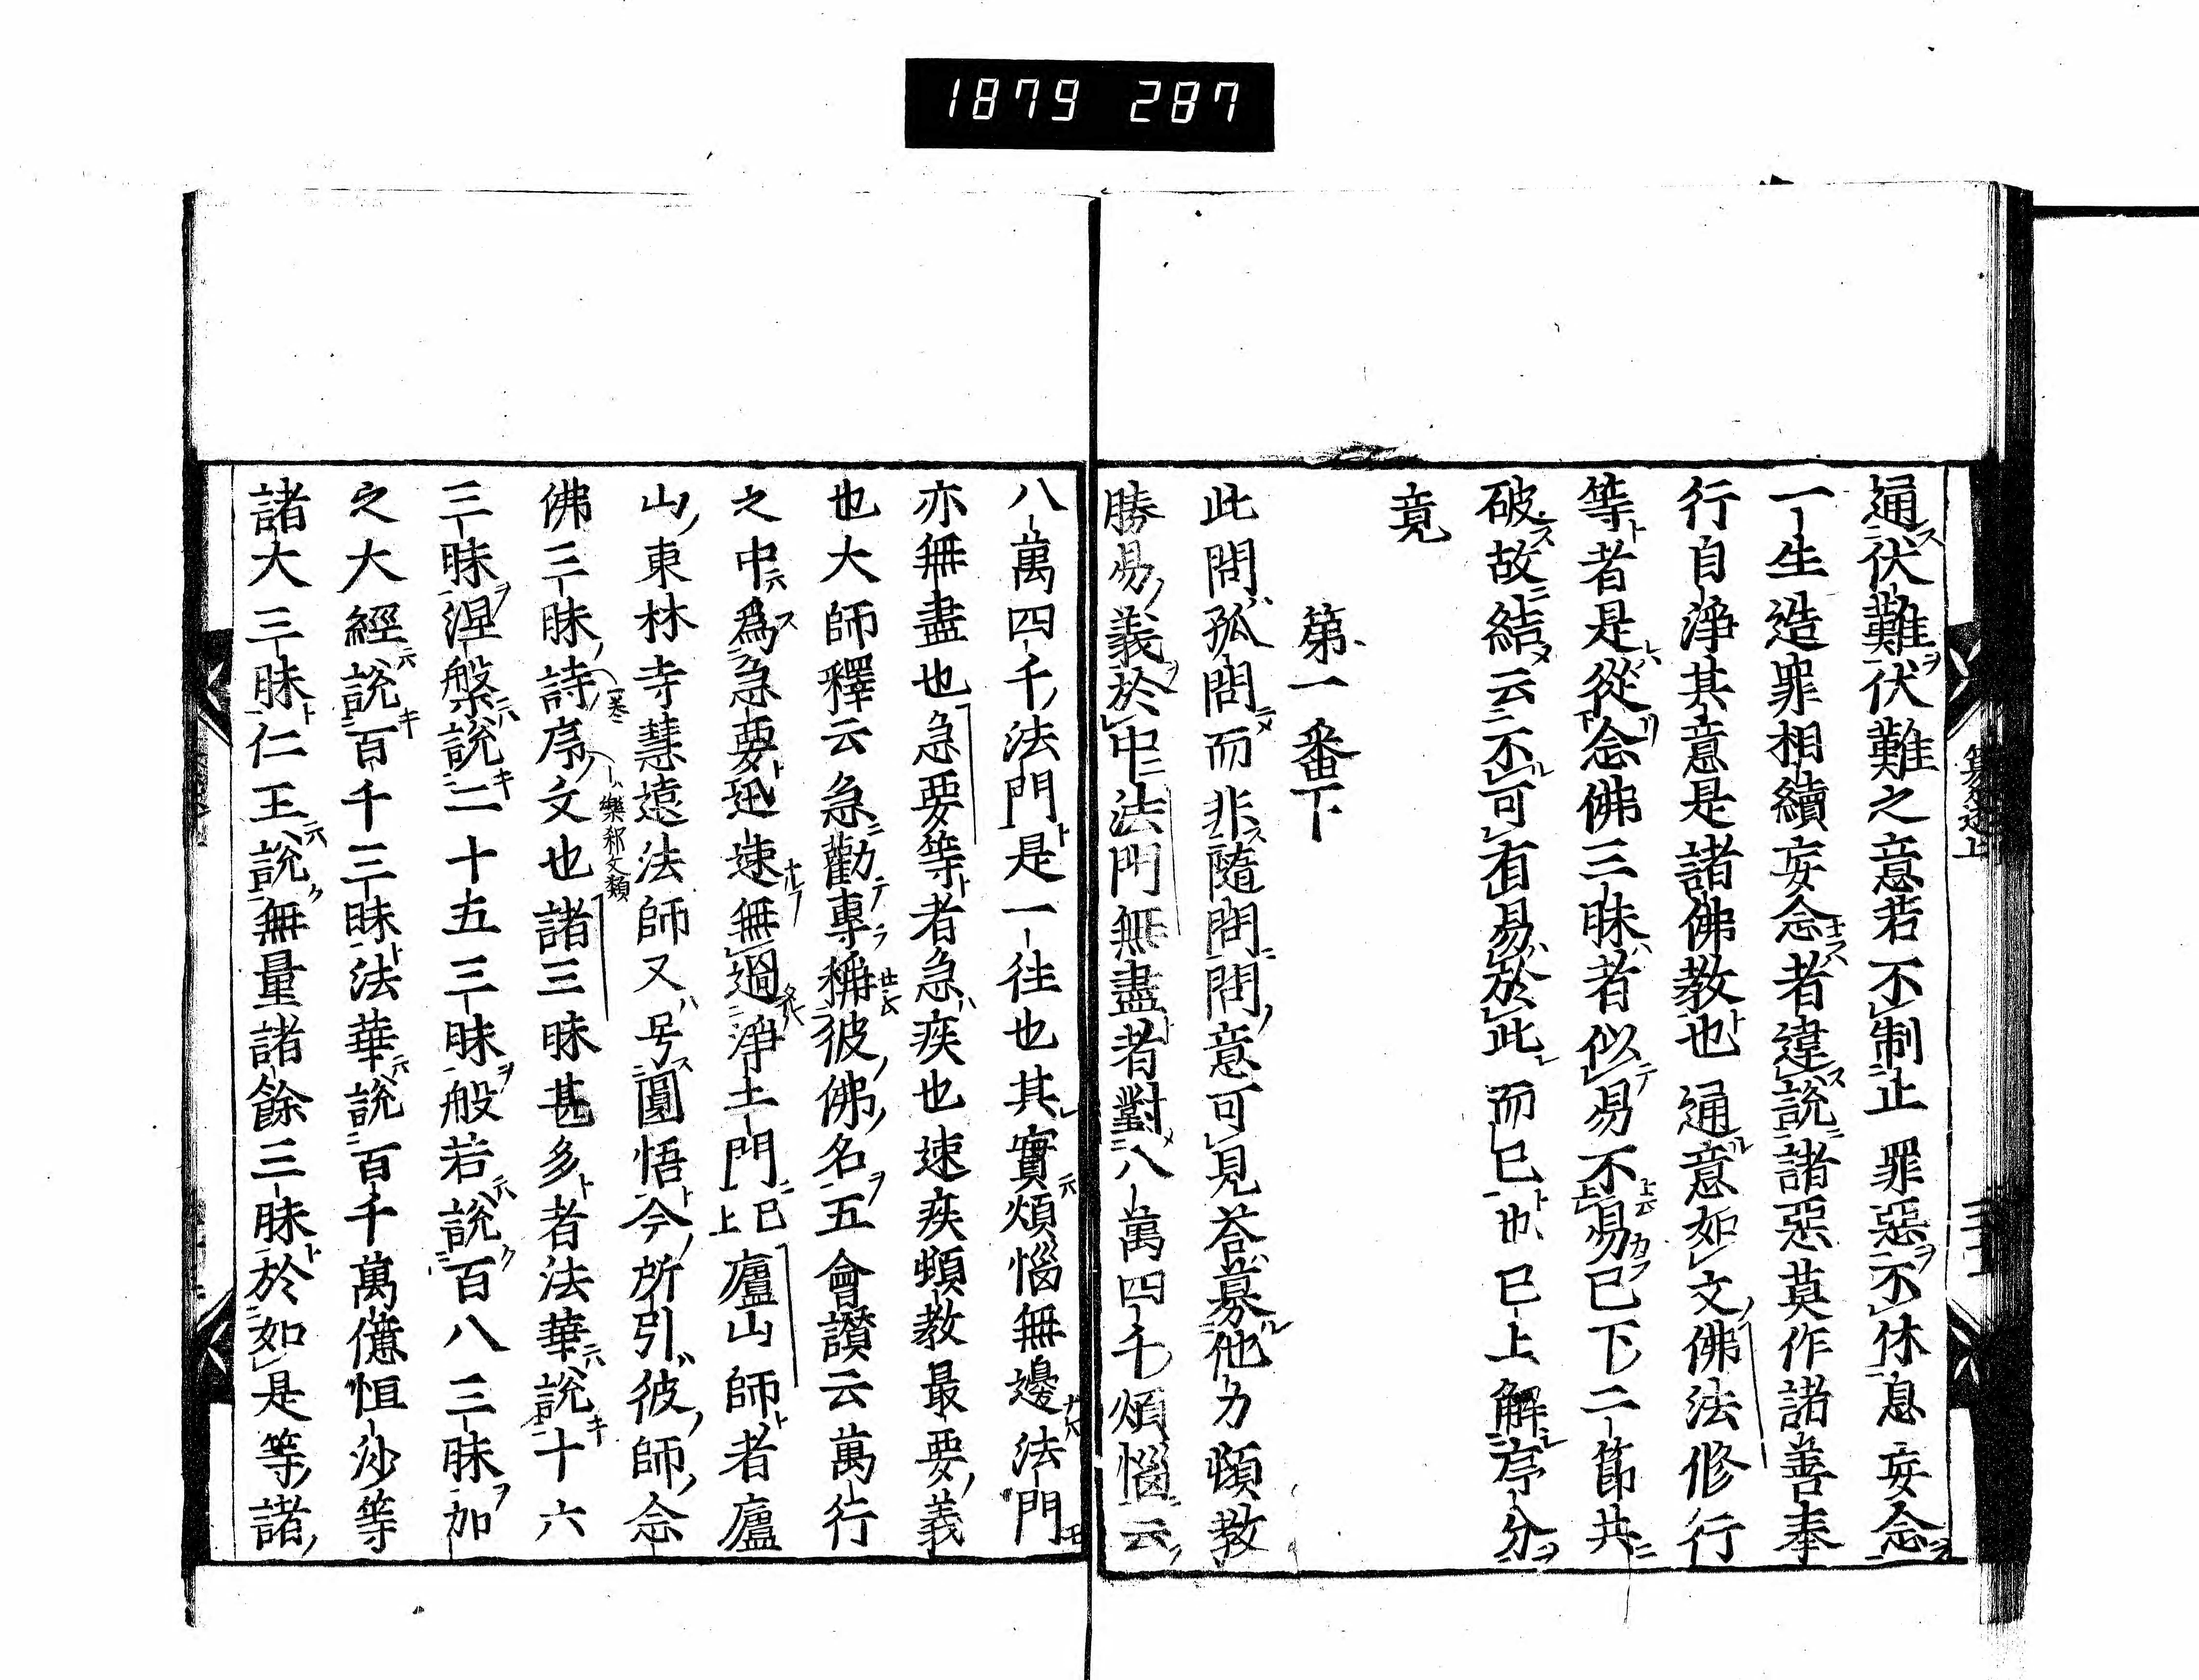 1879 287
通伏難伏難之意若不制止罪惡不休息妄念
一生造罪相續妄念者違說諸惡莫作諸善奉
行自淨其意是諸佛教也通意如文佛法修行
等者是從念佛三昧者似易不易已下二節共
破故結云不可有易於此而已也已上解序分
竟
第一番下
此問孤問而非隨問問意可見荅募他力頓教
勝易義於中法門無盡者對八萬四千煩惱云
八萬四千法門是一往也其實煩惱無邊法門
亦無盡也急要等者急疾也速疾頓教最要義
也大師釋云急勸專稱彼佛名五會讚云萬行
之中爲急要迅速無過淨土門已上廬山師者廬
山東林寺慧遠法師又号圓悟今所引彼師念
佛三昧詩序文也諸三昧甚多者法華說十六
樂邦文類
三昧涅槃說二十五三昧般若說百八三昧加
之大經說百千三昧法華說百千萬億恒沙等
諸大三昧仁王說無量諸餘三昧於如是等諸